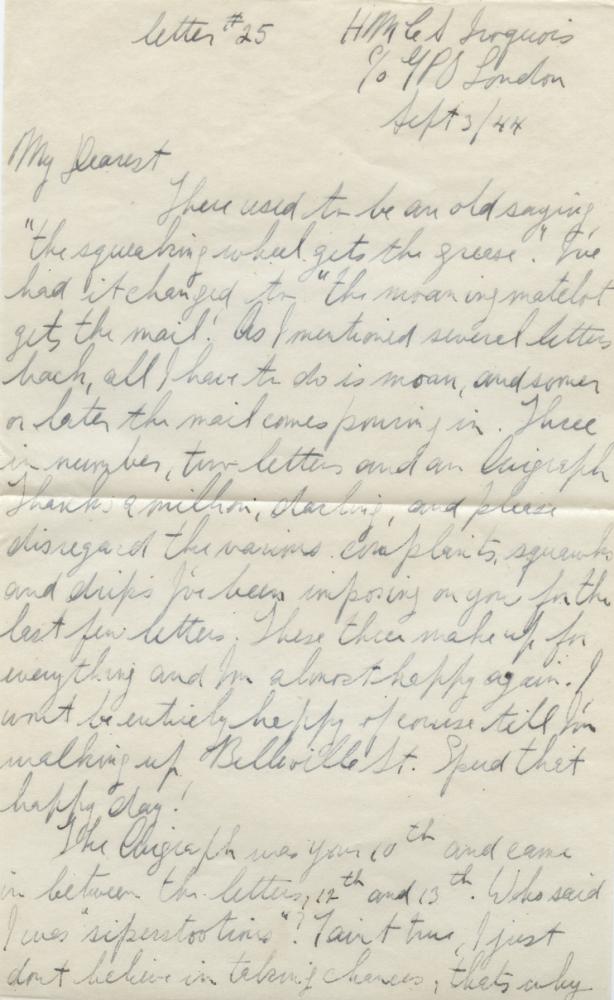 letter #25 HMCS Iroquois
c/o GPO London
Sept 3/44
My Dearest
There used to be an old saying,
"the squeaking wheel gets the grease." I've
had it changed to "the moaning matelot
gets the mail! As I mentioned several letters
back, all I have to do is moan, and sooner
or later the mail comes pouring in. Three
in number, two letters and an Airgraph
Thanks a million, darling, and please
disregard the various complaints, squawks
and drips I've been imposing on you for the
last few letters. These three make up for
everything and I'm almost happy again. I
wont be entirely happy of course till I'm
walking up Belleville St. Speed that
happy day!
The Airgraph was your 10th and came
in between the letters, 12th and 13th. Who said
I was "siperstootious"? Taint true, I just
dont believe in taking chances, thats why